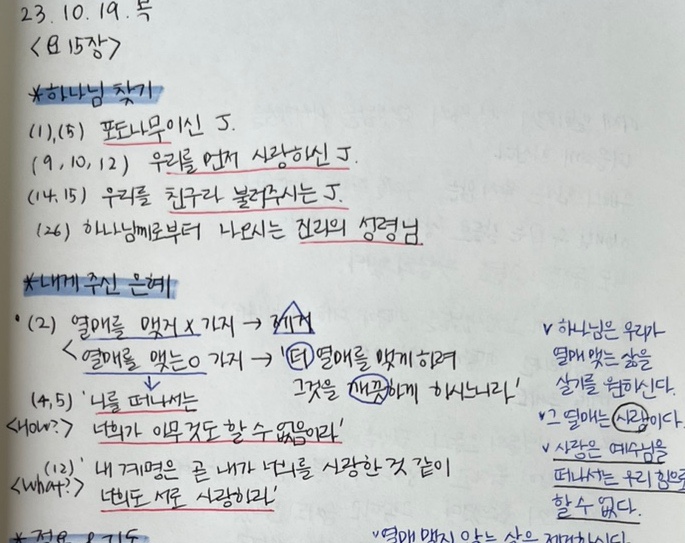 23.10.19.목
<요 15장>
*하나님 찾기
(1),(5) 포도나무이신 J.
(9,10,12) 우리를 먼저 사랑하신 J.
(14.15) 우리를 친구라 불러주시는 J.
(26) 하나님께로부터 나오시는 진리의 성령님
*내게 주신 은혜
• (2) 열매를 맺거 x 가지 → 제거
< 열매를 맺는 o 가지 → '더 열매를 맺게 하려
그것을 깨끗하게 하시느니라'
(4,5) '나를 떠나서는
<How?> 너희가 아무것도 할 수 없음이라'
(12) '내 계명은 곧 내가 너희를 사랑한 것 같이
<What?> 너희도 서로 사랑하라'
v 하나님은 우리가
열매 맺는 삶을
살기를 원하신다.
v 그 열매는 사랑이다.
v 사랑은 예수님을
떠나서는 우리 힘으로
할 수 없다.
*적용 & 기도
v 열매 맺지 않는 삶은 제거하신다.